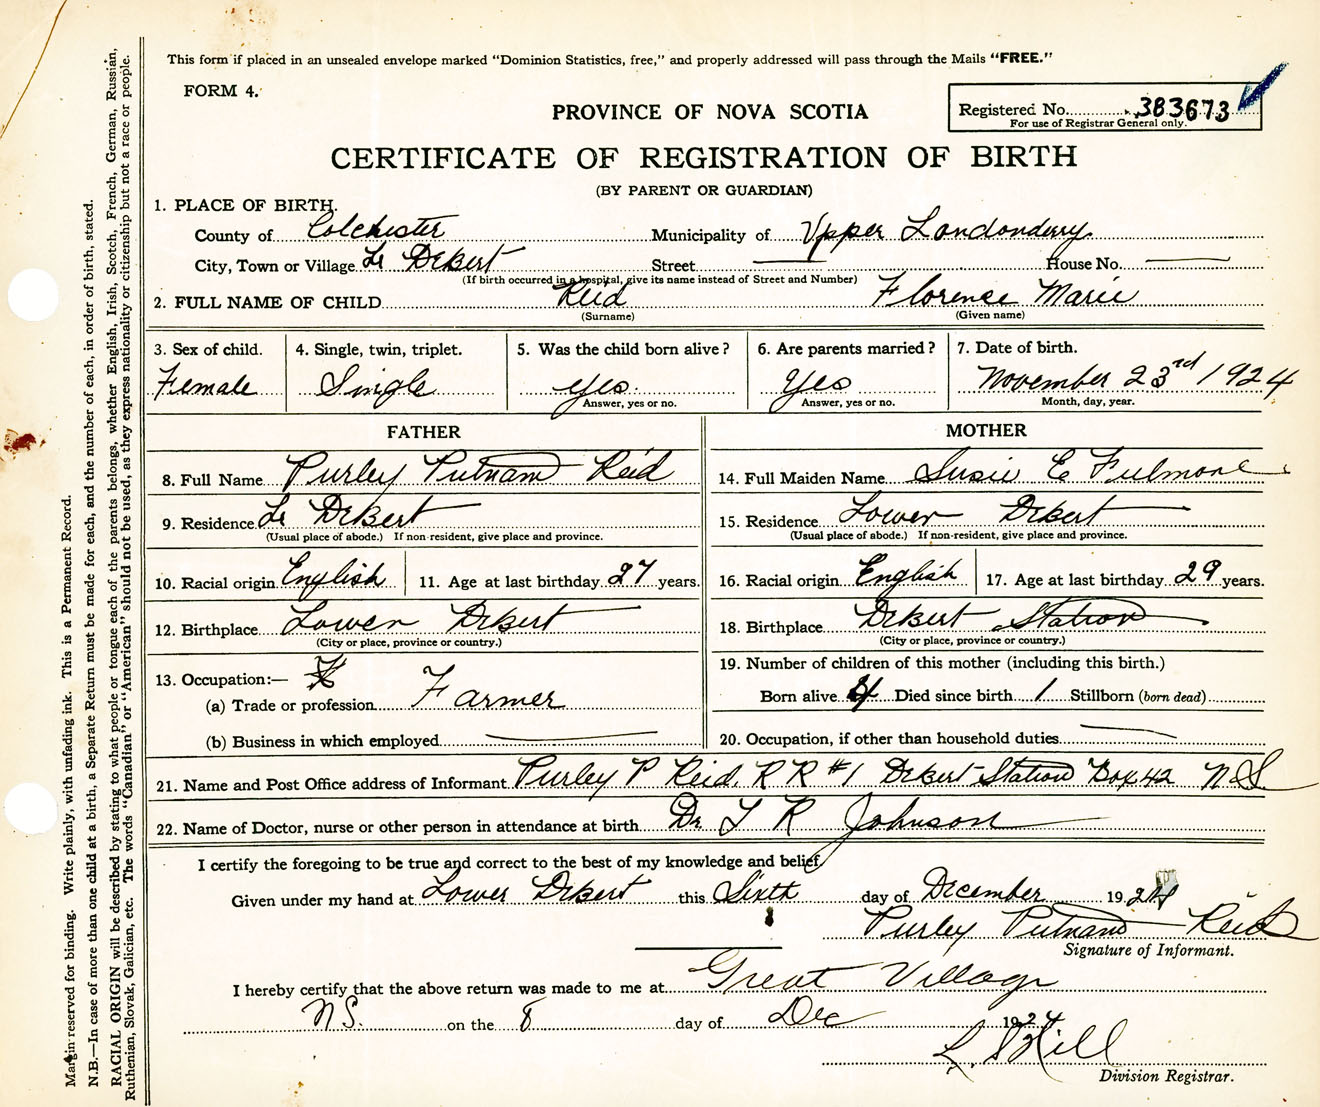 This form if placed in an unsealed envelope marked "Dominion Statistics, free," and properly addressed will pass through the Mails "FREE."
FORM 4.
PROVINCE OF NOVA SCOTIA
Registered No. 383673
For use of Registrar General only.
CERTIFICATE OF REGISTRATION OF BIRTH
(BY PARENT OR GUARDIAN)
1. PLACE OF BIRTH.
County of Colchester Municipality of Upper Londonderry
City, Town or Village Lr Debert Street House No.
(If birth occurred in a hospital, give its name instead of Street and Number)
2. FULL NAME OF CHILD Reid Florence Marie
(Surname) (Given name)
3. Sex of child. 4. Single, twin, triplet. 5. Was the child born alive? 6. Are parents married? 7. Date of birth.
Female Single yes. Yes November 23rd 1924
Answer, yes or no. Answer, yes or no. Month, day, year.
FATHER MOTHER
8. Full Name Purley Putnam Reid 14. Full Maiden Name Susie E Fulmore
9. Residence Lr Debert 15. Residence Lower Debert
(Usual place of abode.) If non-resident, give place and province. (Usual place of abode.) If non-resident, give place and province.
10. Racial origin English 11. Age at last birthday 27 years. 16. Racial origin English 17. Age at last birthday 29 years.
12. Birthplace Lower Debert 18. Birthplace Debert Station
(City or place, province or country.) (City or place, province or country.)
13. Occupation:— 19. Number of children of this mother (including this birth.)
(a) Trade or profession Farmer Born alive 4 Died since birth 1 Stillborn (born dead)
(b) Business in which employed 20. Occupation, if other than household duties
21. Name and Post Office address of Informant Purley P Reid, R R #1 Debert Station Box 42 N.S.
22. Name of Doctor, nurse or other person in attendance at birth Dr. T R Johnson
I certify the foregoing to be true and correct to the best of my knowledge and belief.
Given under my hand at Lower Debert this Sixth day of December 1924
Purley Putnam Reid
Signature of Informant.
I hereby certify that the above return was made to me at Great Village
N.S. on the 8 day of Dec 1924
Hill
Division Registrar.
Margin reserved for binding. Write plainly, with unfading ink. This is a Permanent Record.
N.B.—In case of more than one child at a birth, a Separate Return must be made for each, and the number of each, in order of birth, stated.
RACIAL ORIGIN will be described by stating to what people or tongue each of the parents belongs, whether English, Irish, Scotch, French, German, Russian,
Ruthenian, Slovak, Galician, etc. The words "Canadian" or "American" should not be used, as they express nationality or citizenship but not a race or people.